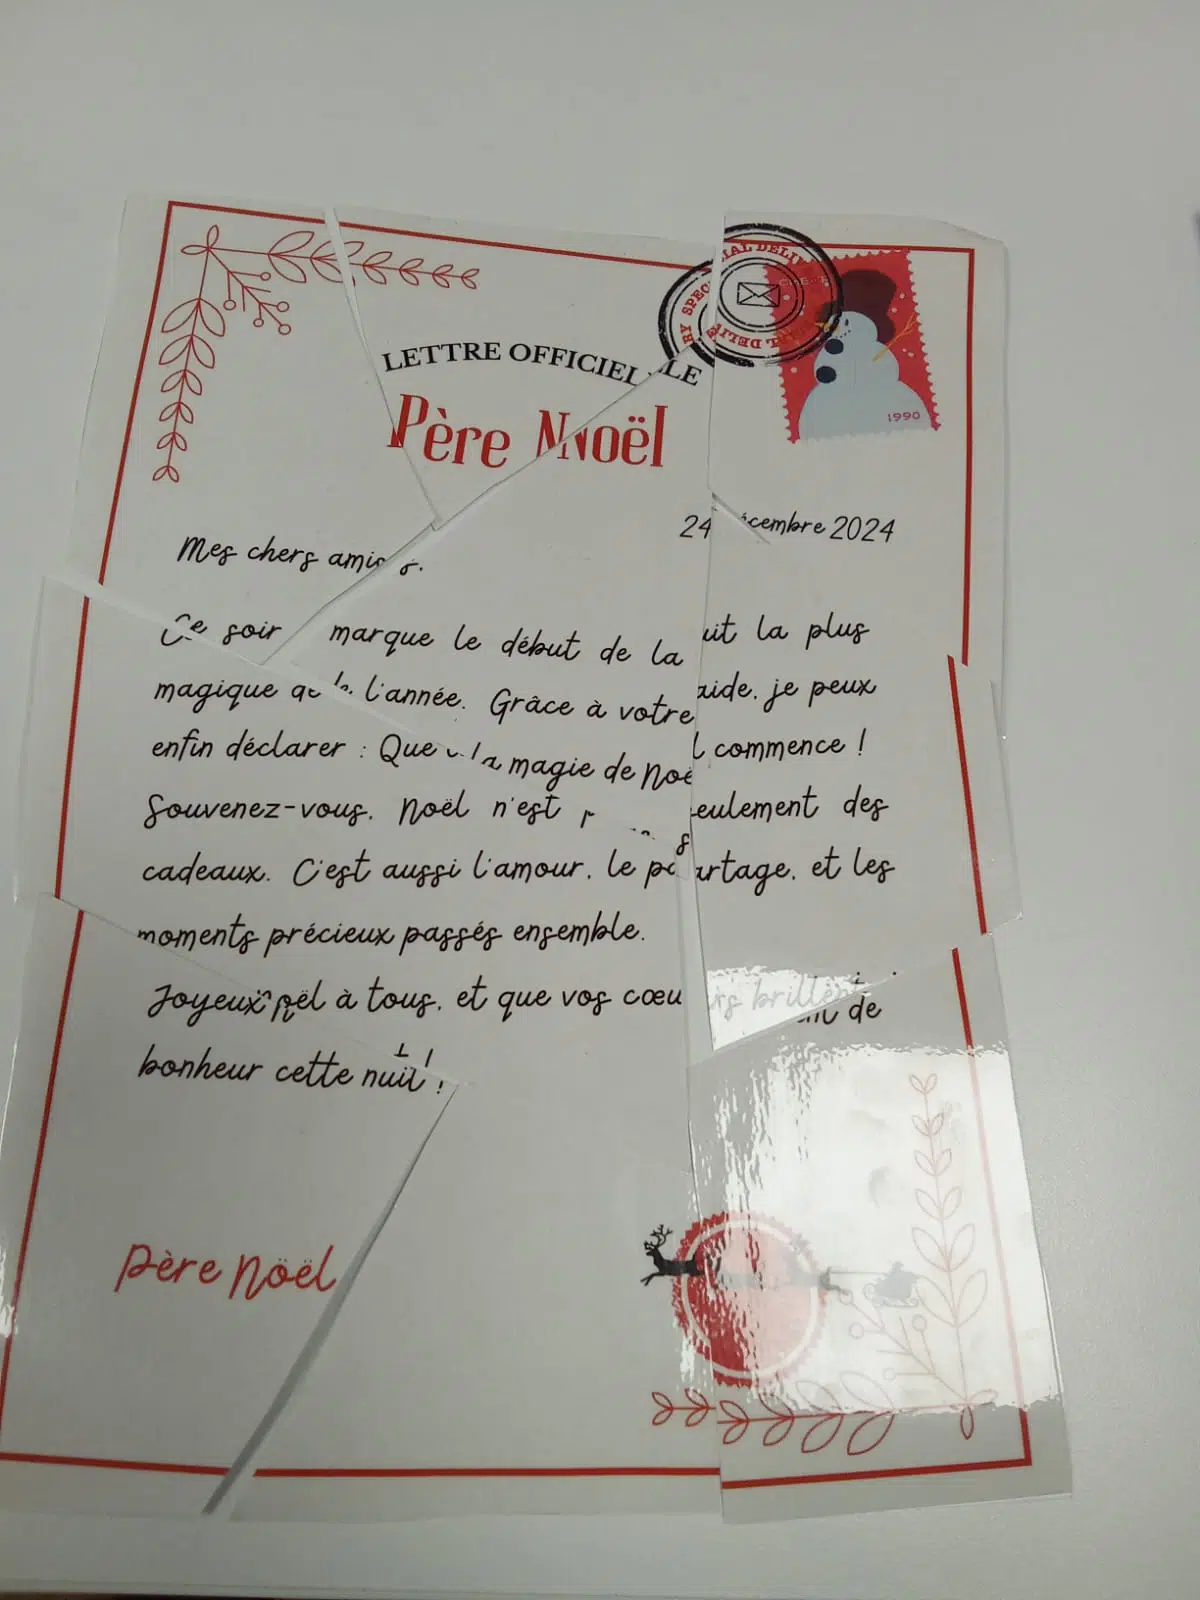 LETTRE OFFICIELLE
Père Noël
BY SPECIAL DELIVERY
1990
24 décembre 2024
Mes chers amis.
Ce soir marque le début de la nuit la plus
magique de l'année. Grâce à votre aide, je peux
enfin déclarer : Que la magie de Noël commence !
Souvenez-vous, Noël n'est pas seulement des
cadeaux. C'est aussi l'amour, le partage, et les
moments précieux passés ensemble.
Joyeux Noël à tous, et que vos cœurs brillent de
bonheur cette nuit !
Père Noël